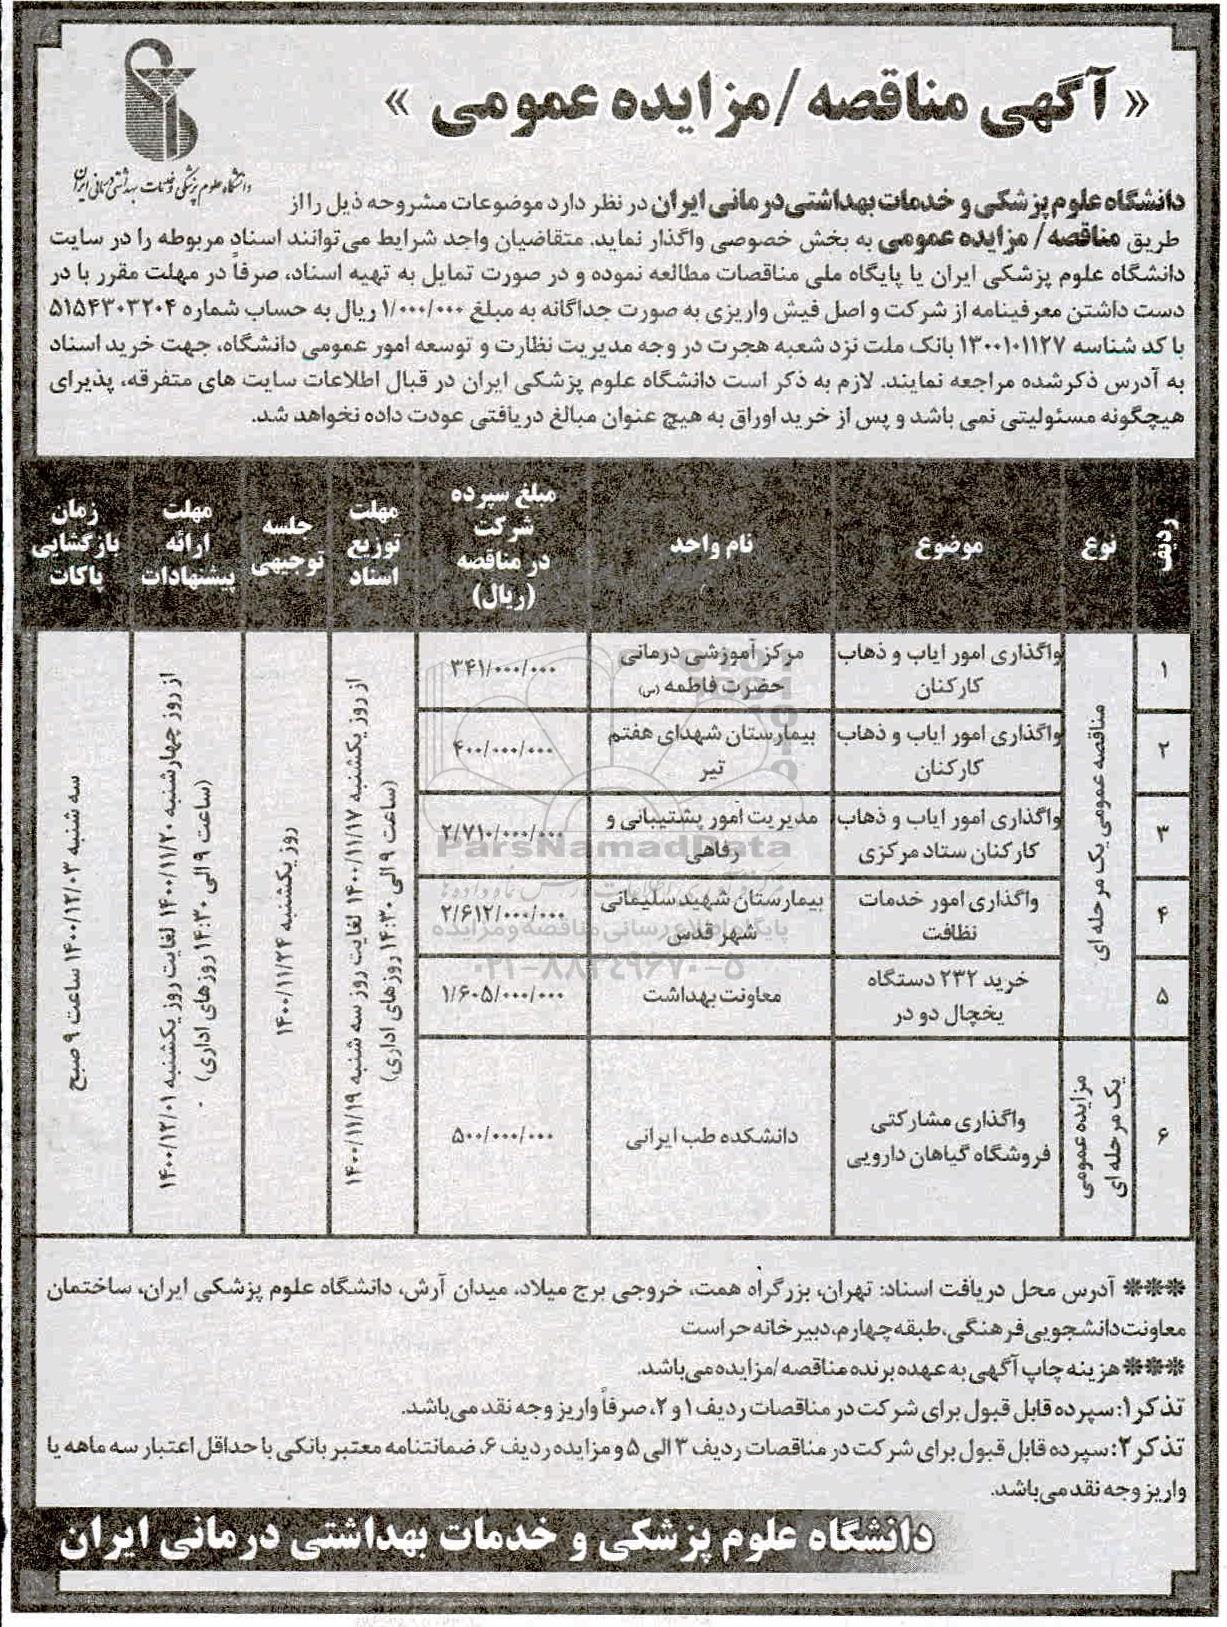 « آگهی مناقصه /مزایده عمومی »
دانشگاه علوم پزشکی و خدمات بهداشتی درمانی ایران
دانشگاه علوم پزشکی و خدمات بهداشتی درمانی ایران در نظر دارد موضوعات مشروحه ذیل را از
طریق مناقصه/ مزایده عمومی به بخش خصوصی واگذار نماید. متقاضیان واجد شرایط می‌توانند اسناد مربوطه را در سایت
دانشگاه علوم پزشکی ایران یا پایگاه ملی مناقصات مطالعه نموده و در صورت تمایل به تهیه اسناد، صرفاً در مهلت مقرر با در
دست داشتن معرفینامه از شرکت و اصل فیش واریزی به صورت جداگانه به مبلغ ۱/۰۰۰/۰۰۰ ریال به حساب شماره ۵۱۵۴۳۰۳۲۰۴
با کد شناسه ۱۳۰۰۱۰۱۱۲۷ بانک ملت نزد شعبه هجرت در وجه مدیریت نظارت و توسعه امور عمومی دانشگاه، جهت خرید اسناد
به آدرس ذکرشده مراجعه نمایند. لازم به ذکر است دانشگاه علوم پزشکی ایران در قبال اطلاعات سایت های متفرقه، پذیرای
هیچگونه مسئولیتی نمی باشد و پس از خرید اوراق به هیچ عنوان مبالغ دریافتی عودت داده نخواهد شد.
ردیف
نوع
موضوع
نام واحد
مبلغ سپرده
شرکت
در مناقصه
(ریال)
مهلت
توزیع
اسناد
جلسه
توجیهی
مهلت
ارائه
پیشنهادات
زمان
بازگشایی
پاکات
۱
مناقصه عمومی یک مرحله ای
واگذاری امور ایاب و ذهاب
کارکنان
مرکز آموزشی درمانی
حضرت فاطمه (س)
۳۴۱/۰۰۰/۰۰۰
از روز یکشنبه ۱۴۰۰/۱۱/۱۷ لغایت روز سه شنبه ۱۴۰۰/۱۱/۱۹
(ساعت ۹ الی ۱۴:۳۰ روزهای اداری)
روز یکشنبه ۱۴۰۰/۱۱/۲۴
از روز چهارشنبه ۱۴۰۰/۱۱/۲۰ لغایت روز یکشنبه ۱۴۰۰/۱۲/۰۱
(ساعت ۹ الی ۱۴:۳۰ روزهای اداری)
سه شنبه ۱۴۰۰/۱۲/۰۳ ساعت ۹ صبح
۲
واگذاری امور ایاب و ذهاب
کارکنان
بیمارستان شهدای هفتم
تیر
۴۰۰/۰۰۰/۰۰۰
۳
واگذاری امور ایاب و ذهاب
کارکنان ستاد مرکزی
مدیریت امور پشتیبانی و
رفاهی
۲/۷۱۰/۰۰۰/۰۰۰
ParsNamadData
۴
واگذاری امور خدمات
نظافت
بیمارستان شهید سلیمانی
شهر قدس
۲/۶۱۲/۰۰۰/۰۰۰
پایگاه اطلاع رسانی مناقصه و مزایده
۰۲۱-۸۸۳۴۹۶۷۰-۵
۵
خرید ۲۳۲ دستگاه
یخچال دو در
معاونت بهداشت
۱/۶۰۵/۰۰۰/۰۰۰
۶
مزایده عمومی
یک مرحله ای
واگذاری مشارکتی
فروشگاه گیاهان دارویی
دانشکده طب ایرانی
۵۰۰/۰۰۰/۰۰۰
*** آدرس محل دریافت اسناد: تهران، بزرگراه همت، خروجی برج میلاد، میدان آرش، دانشگاه علوم پزشکی ایران، ساختمان
معاونت دانشجویی فرهنگی، طبقه چهارم، دبیرخانه حراست
*** هزینه چاپ آگهی به عهده برنده مناقصه /مزایده می‌باشد.
تذکر۱: سپرده قابل قبول برای شرکت در مناقصات ردیف ۱ و ۲، صرفاً واریز وجه نقد می‌باشد.
تذکر۲: سپرده قابل قبول برای شرکت در مناقصات ردیف ۳ الی ۵ و مزایده ردیف ۶، ضمانتنامه معتبر بانکی با حداقل اعتبار سه ماهه یا
واریز وجه نقد می‌باشد.
دانشگاه علوم پزشکی و خدمات بهداشتی درمانی ایران